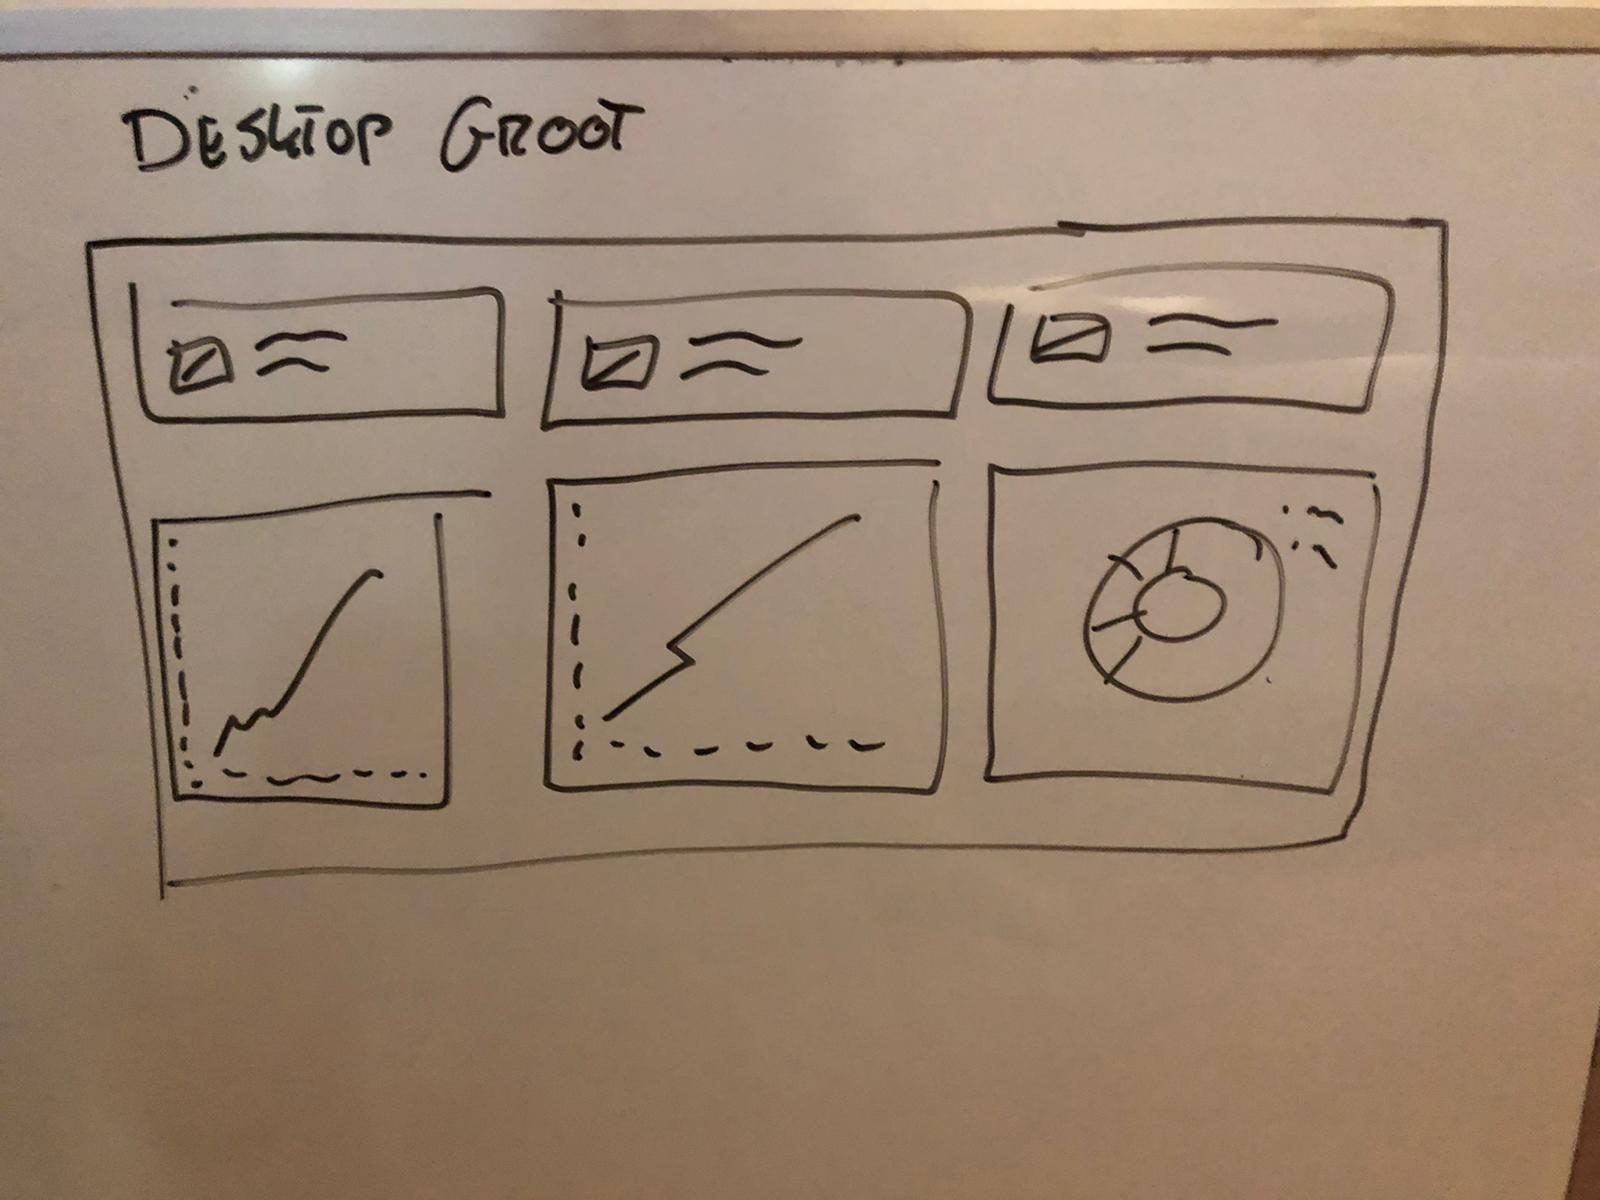 DESKTOP GROOT